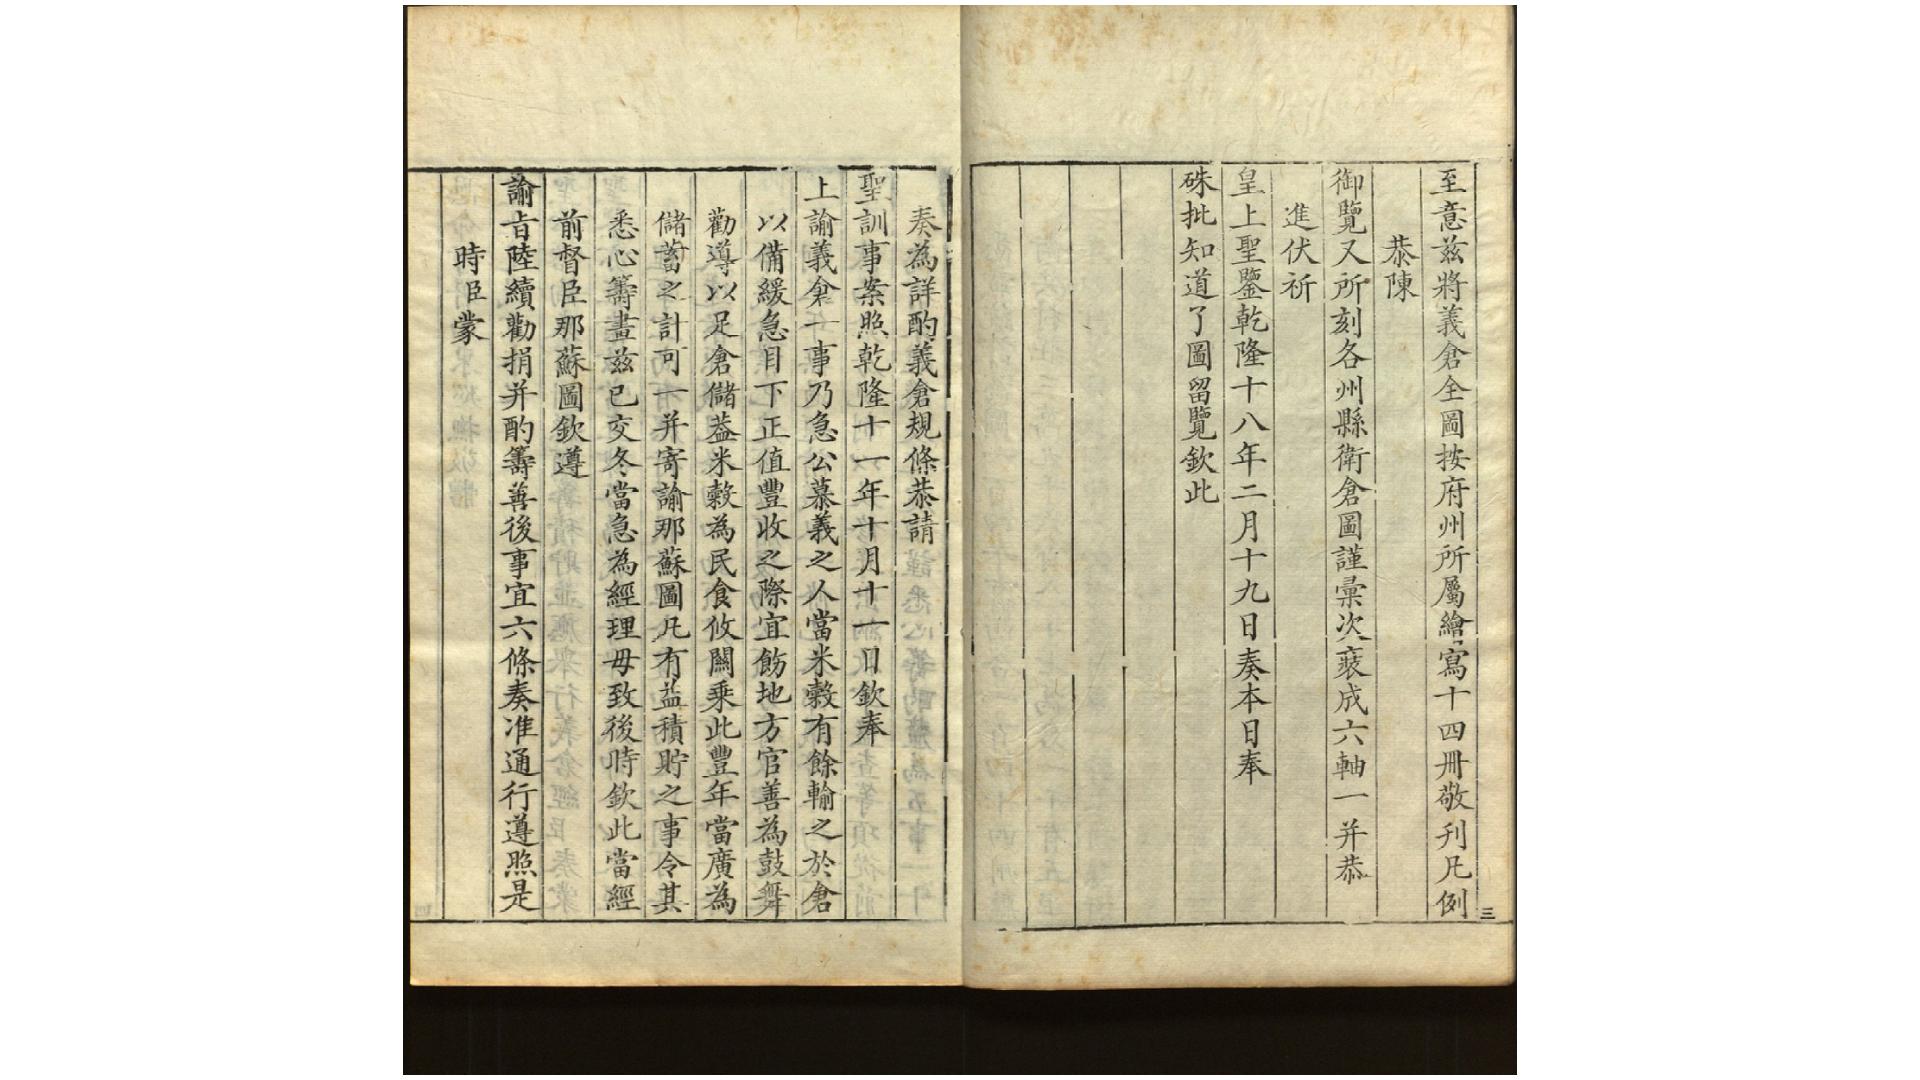 至意茲將義倉全圖按府州所屬繪寫十四冊敬刋凡例
恭陳
御覽又所刻各州縣衛倉圖謹彚次裒成六軸一并恭
進伏祈
皇上聖鑒乾隆十八年二月十九日奏本日奉
硃批知道了圖留覽欽此
三
奏為詳酌義倉規條恭請
聖訓事案照乾隆十一年十月十一日欽奉
上諭義倉一事乃急公慕義之人當米穀有餘輸之於倉
以備緩急目下正值豐收之際宜飭地方官善為鼓舞
勸導以足倉儲葢米穀為民食攸關乘此豐年當廣為
儲蓄之計可一并寄諭那蘇圖凡有益積貯之事令其
悉心籌畫茲已交冬當急為經理毋致後時欽此當經
前督臣那蘇圖欽遵
諭㫖陸續勸捐并酌籌善後事宜六條奏准通行遵照是
時臣蒙